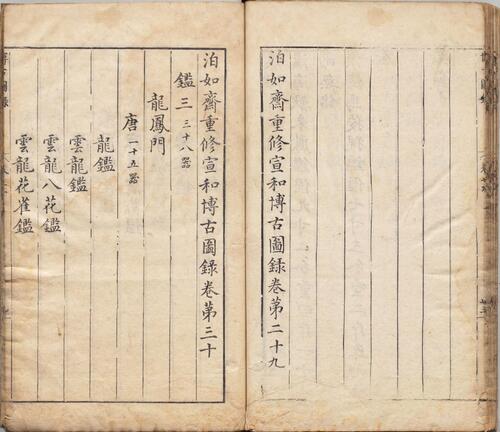 泊如齋重修宣和博古圖錄卷第二十九
泊如齋重修宣和博古圖錄卷第三十
鑑三三十八器
龍鳳門
唐一十五器
龍鑑
雲龍鑑
雲龍八花鑑
雲龍花雀鑑